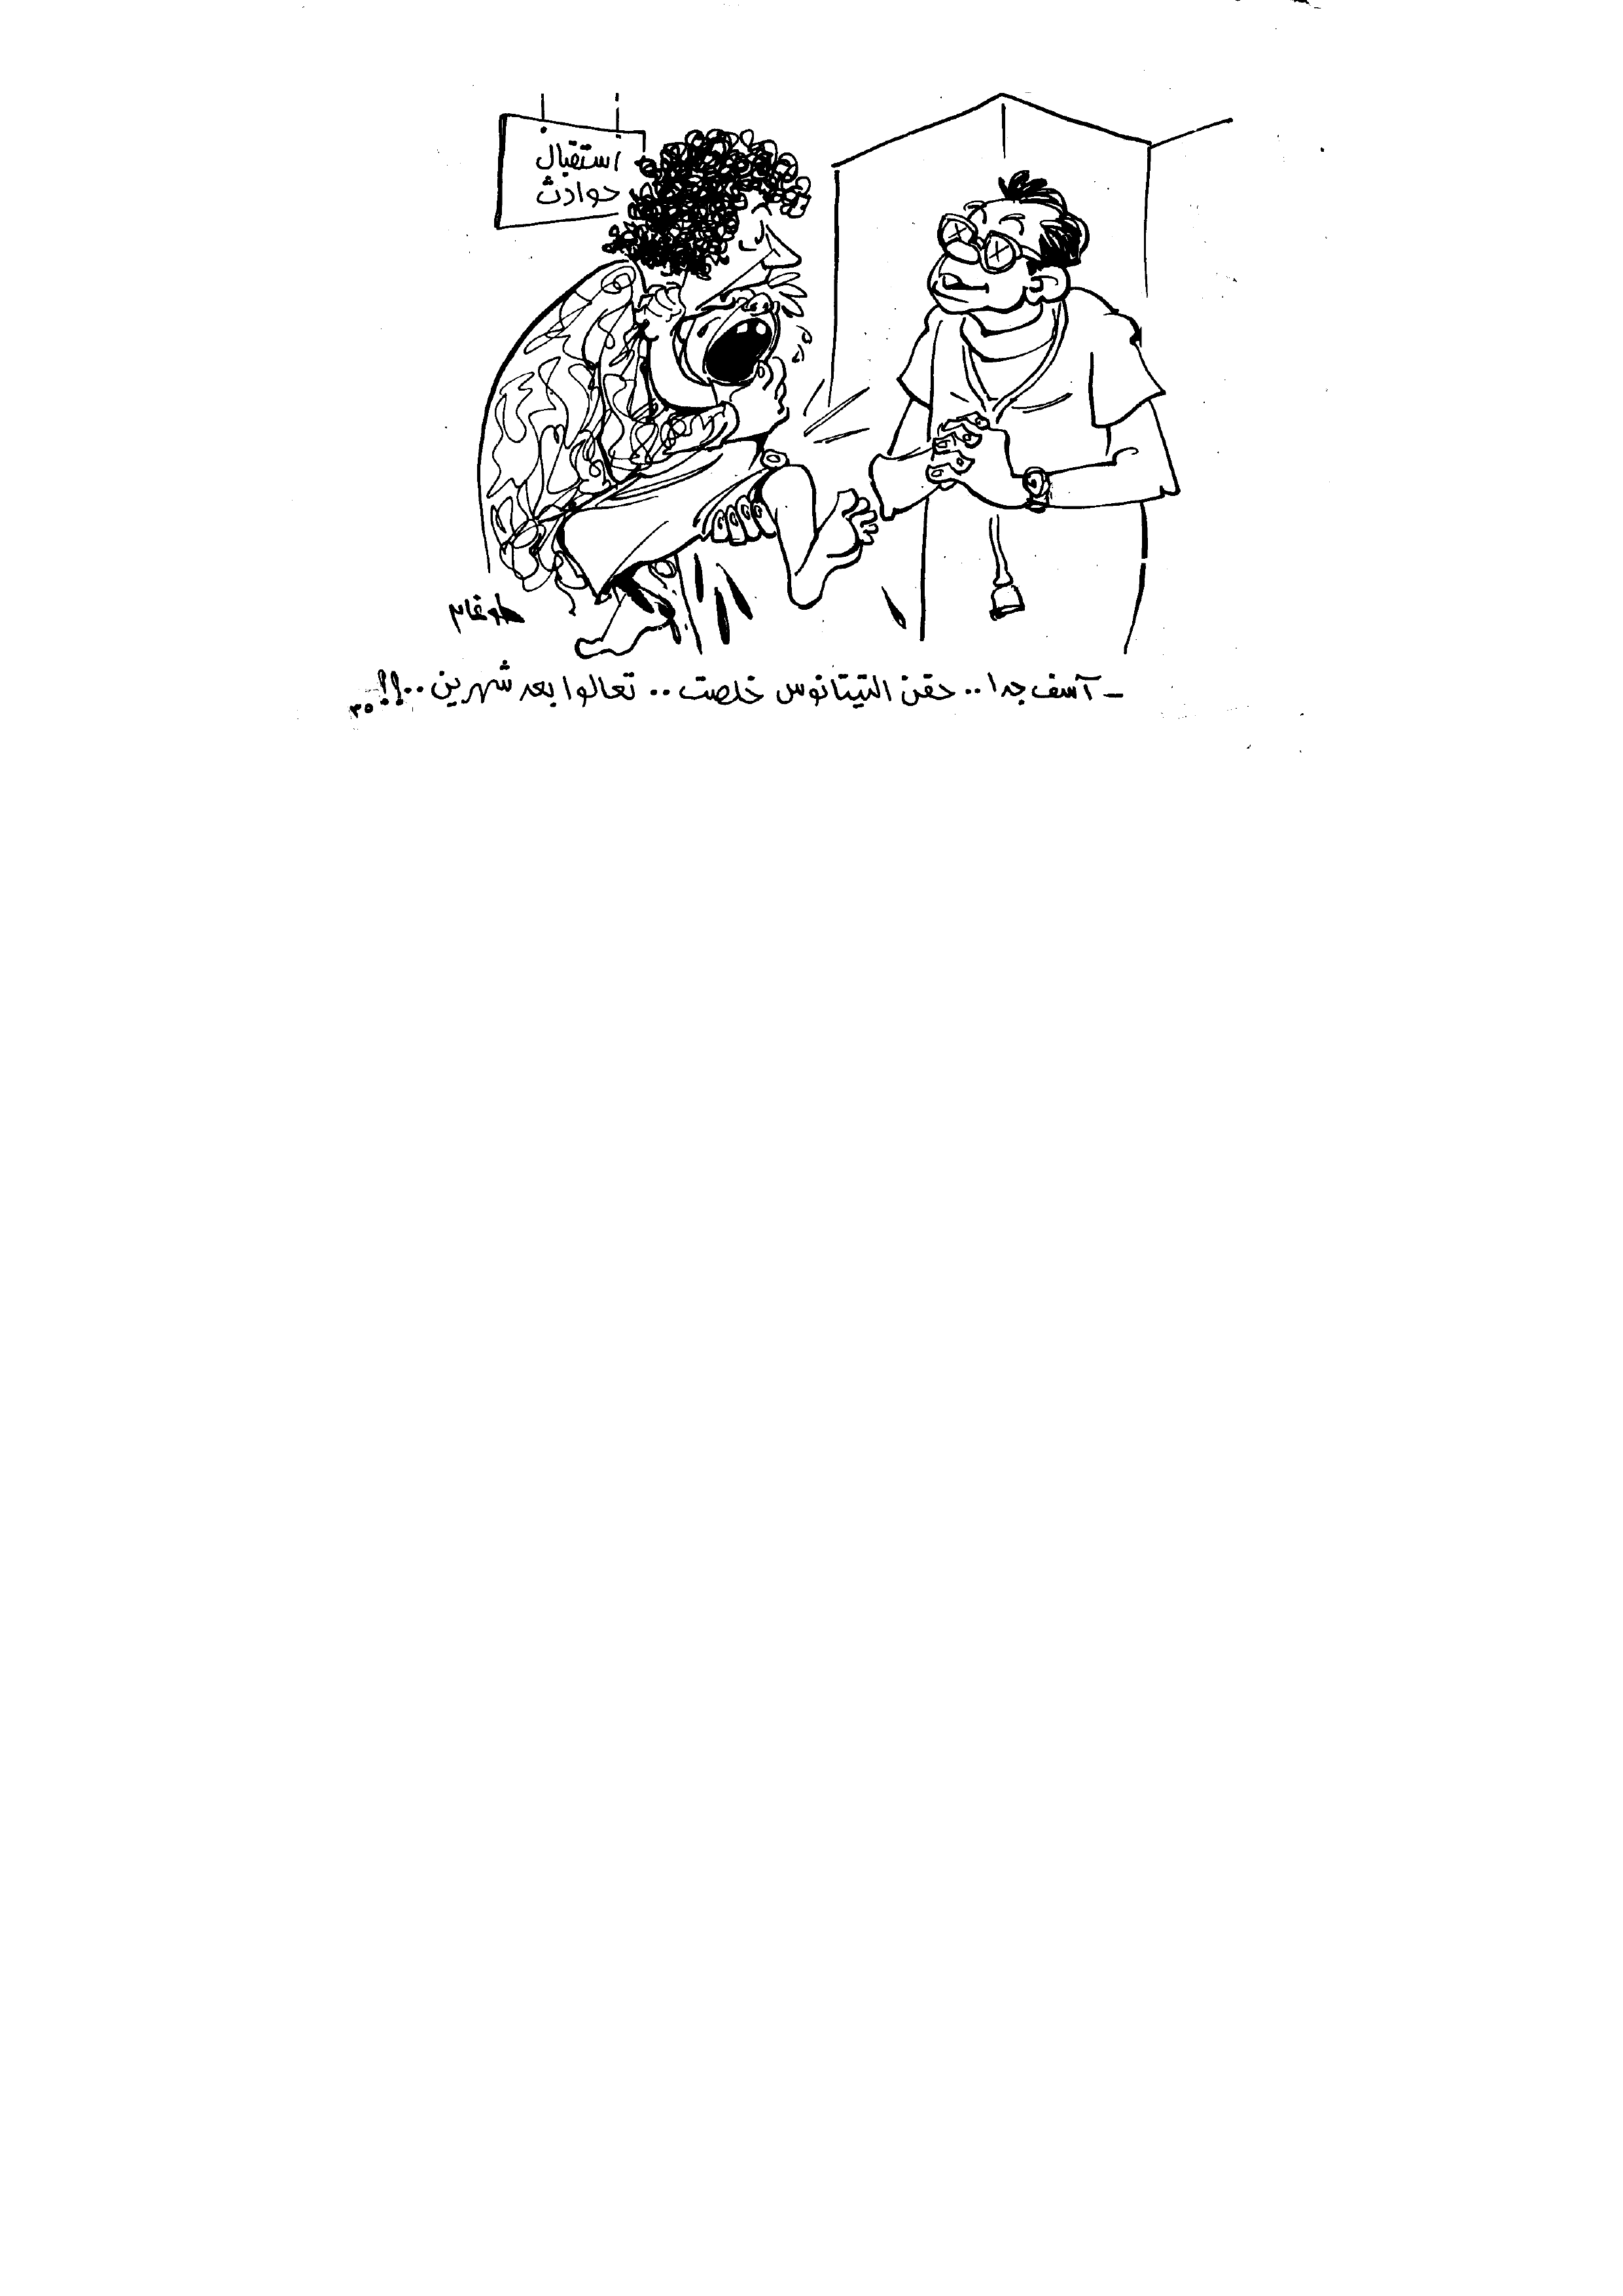 استقبال
حوادث
طوغان
- آسف جدا.. حقن التيتانوس خلصت.. تعالوا بعد شهرين..!!